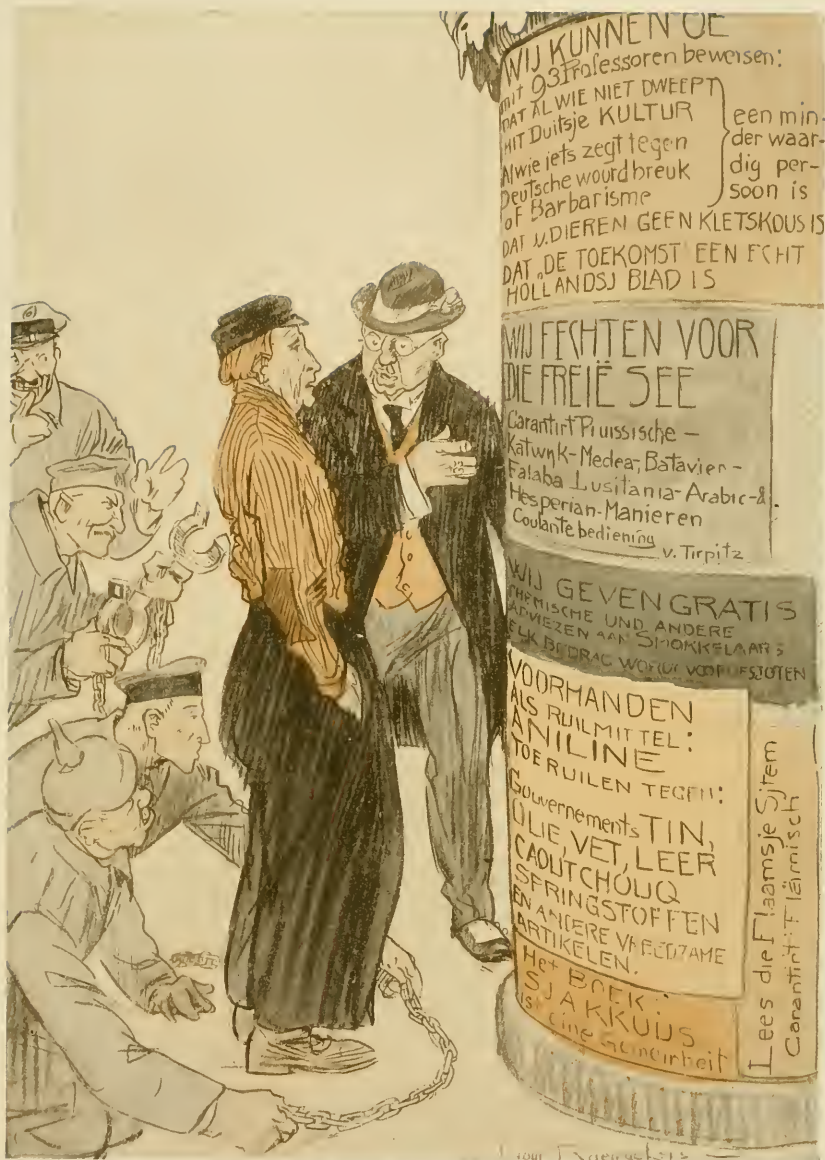 WIJ KUNNEN OE
mit 93 Professoren beweisen:
DAT AL WIE NIET DWEEPT
MIT Duitsje KULTUR
Alwie iets zegt tegen
Deutsche wourdbreuk
of Barbarisme
een min-
der waar-
dig per-
soon is
DAT v. DIEREN GEEN KLETSKOUS IS
DAT „DE TOEKOMST" EEN ECHT
HOLLANDSJ BLAD IS
WIJ FECHTEN VOOR
DIE FREIË SEE
Garantirt Pruissische -
Katwyk-Medea, Batavier -
Falaba Lusitania-Arabic-&
Hesperian-Manieren
Coulante bediening
v. Tirpitz
WIJ GEVEN GRATIS
CHEMISCHE UND ANDERE
ADVIEZEN AAN SMOKKELAARS
ELK BEDRAG WORDT
VOORHANDEN
ALS RUILMITTEL:
ANILINE
TOE RUILEN TEGEN:
Gouvernements TIN,
OLIE, VET, LEER
CAOUTCHOUQ
SPRINGSTOFFEN
EN ANDERE VREEDZAME
ARTIKELEN.
Het BOEK
SJAKKUUS
ist eine Gemeinheit
Lees die Flaamsje Sjtem
Garantirt Flämisch